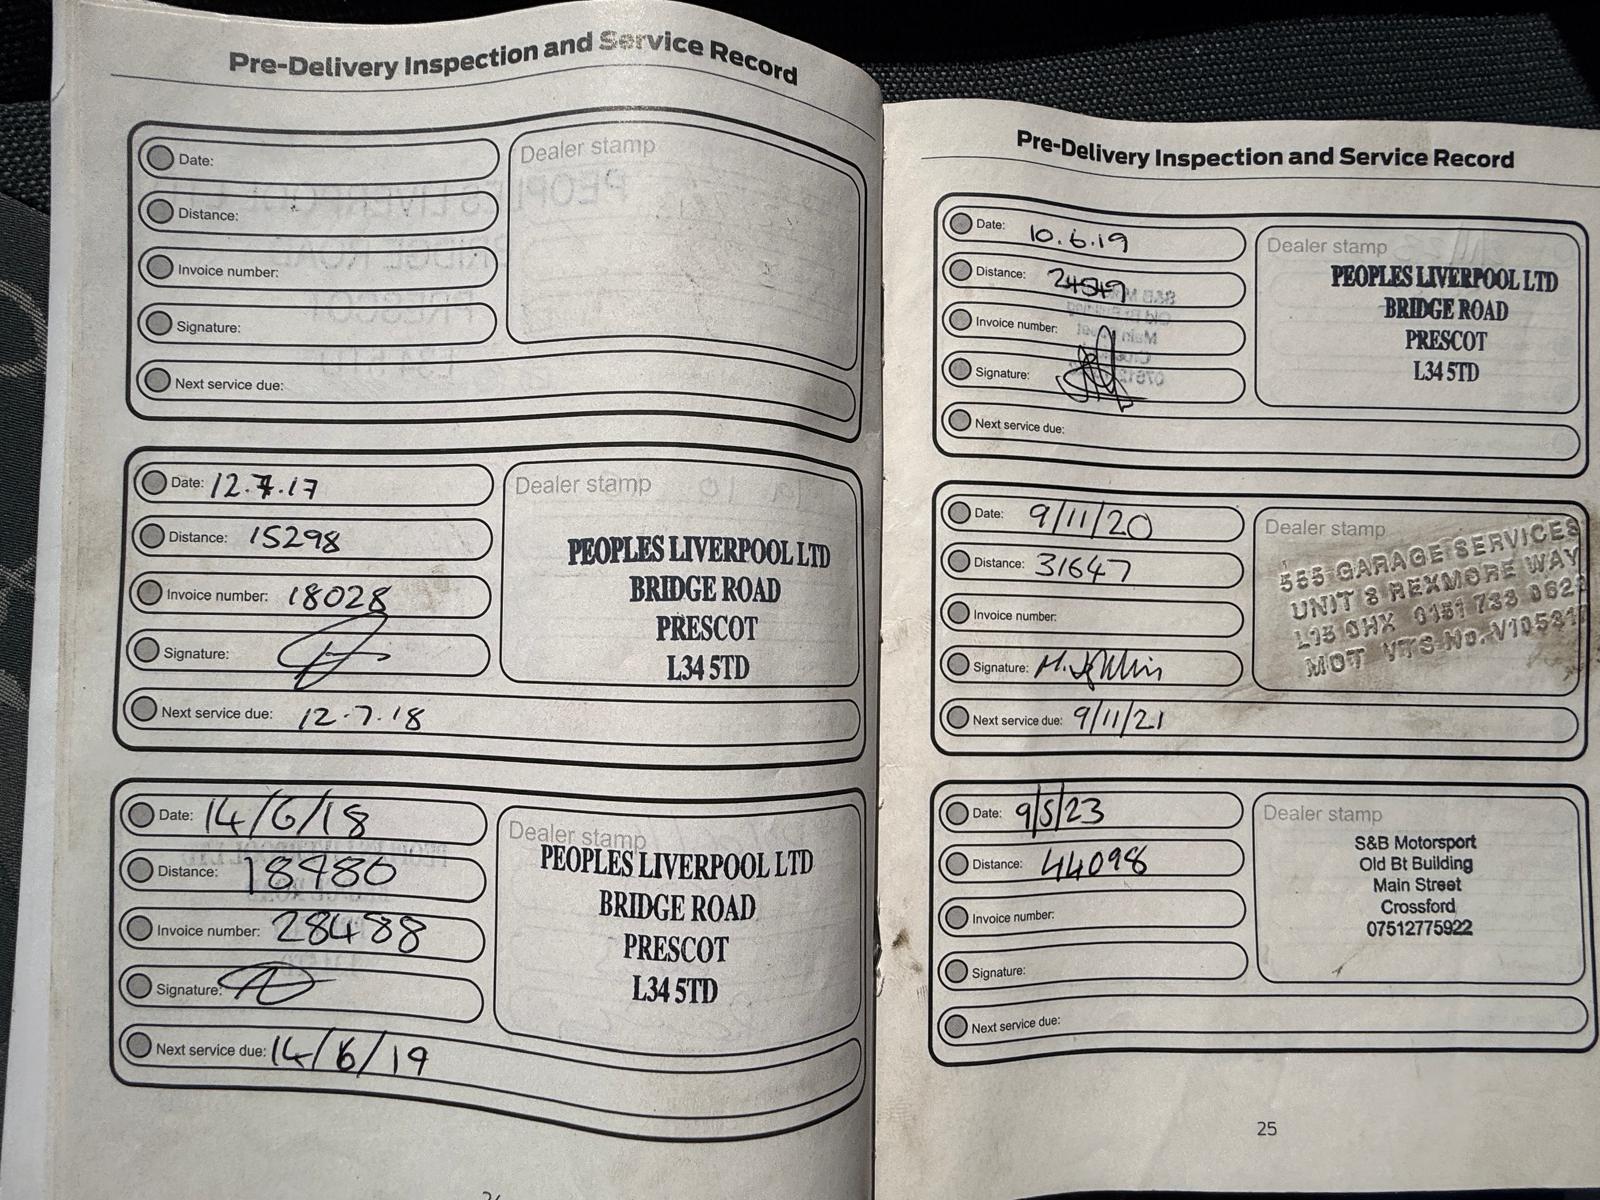 Pre-Delivery Inspection and Service Record
Date:
Distance:
Invoice number:
Signature:
Next service due:
Dealer stamp
Date: 12.7.17
Distance: 15298
Invoice number: 18028
Signature:
Next service due: 12.7.18
Dealer stamp
PEOPLES LIVERPOOL LTD
BRIDGE ROAD
PRESCOT
L34 5TD
Date: 14/6/18
Distance: 18980
Invoice number: 28488
Signature:
Next service due: 14/6/19
Dealer stamp
PEOPLES LIVERPOOL LTD
BRIDGE ROAD
PRESCOT
L34 5TD
Pre-Delivery Inspection and Service Record
Date: 10.6.19
Distance: 24549
Invoice number:
Signature:
Next service due:
Dealer stamp
PEOPLES LIVERPOOL LTD
BRIDGE ROAD
PRESCOT
L34 5TD
Date: 9/11/20
Distance: 31647
Invoice number:
Signature:
Next service due: 9/11/21
Dealer stamp
555 GARAGE SERVICES
UNIT 8 REXMORE WAY
L15 0HX 0151 733
MOT VTS No.
Date: 9/5/23
Distance: 44098
Invoice number:
Signature:
Next service due:
Dealer stamp
S&B Motorsport
Old Bt Building
Main Street
Crossford
07512775922
25